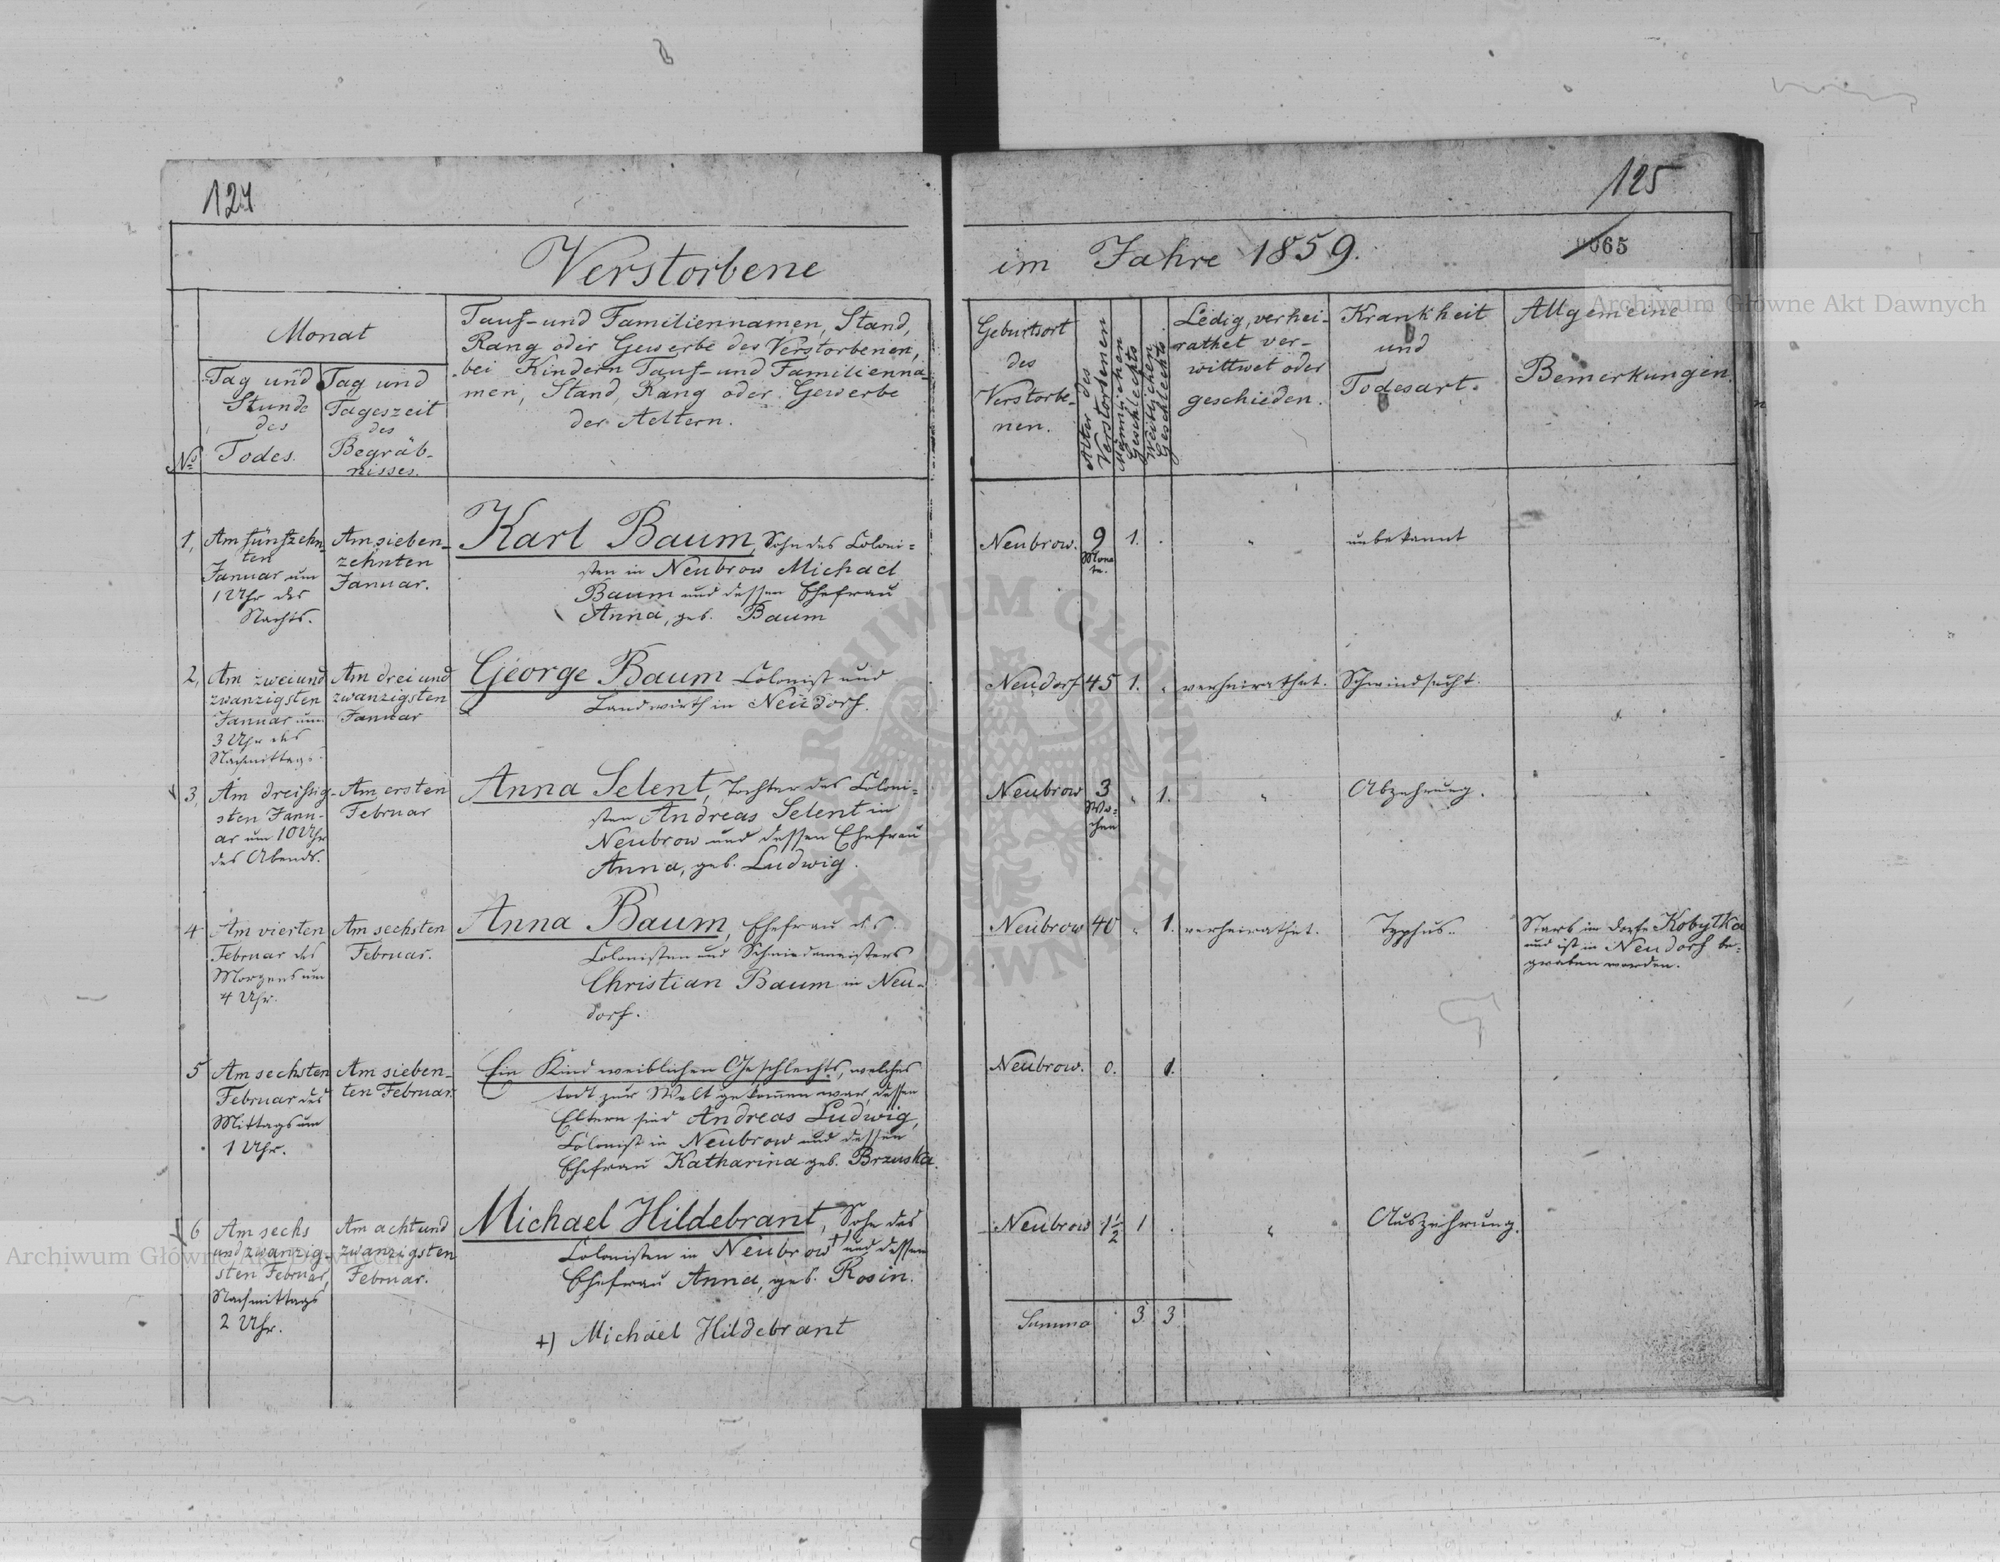 124
Verstorbene
Monat
Tag und
Stunde
des
Todes.
Tag und
Tageszeit
des
Begräb-
nisses.
No
Tauf- und Familiennamen, Stand,
Rang oder Gewerbe des Verstorbenen,
bei Kindern Tauf- und Familienna-
men, Stand, Rang oder Gewerbe
der Aeltern.
1,
Am fünfzehn-
ten
Januar um
1 Uhr des
Nachts.
Am sieben-
zehnten
Januar.
Karl Baum, Sohn des Coloni=
sten in Neubrow Michael
Baum und dessen Ehefrau
Anna, geb. Baum
2,
Am zweiund
zwanzigsten
Januar um
3 Uhr des
Nachmittags.
Am drei und
zwanzigsten
Januar
George Baum Colonist und
Landwirth in Neudorf.
3,
Am dreissig-
sten Janu-
ar um 10 Uhr
des Abends.
Am ersten
Februar
Anna Selent, Tochter des Coloni=
sten Andreas Selent in
Neubrow und dessen Ehefrau
Anna, geb. Ludwig.
4
Am vierten
Februar des
Morgens um
4 Uhr.
Am sechsten
Februar.
Anna Baum, Ehefrau des
Colonisten und Schmiedemeisters
Christian Baum in Neu=
dorf.
5
Am sechsten
Februar des
Mittags um
1 Uhr.
Am sieben-
ten Februar.
Ein Kind weiblichen Geschlechts, welches
todt zur Welt gekomen war, dessen
Eltern sind Andreas Ludwig,
Colonist in Neubrow und dessen
Ehefrau Katharina geb. Brzuska.
6
Am sechs
und zwanzig-
sten Februar,
Nachmittags
2 Uhr.
Am acht und
zwanzigsten
Februar.
Michael Hildebrant, Sohn des
Colonisten in Neubrow +) und dessen
Ehefrau Anna, geb. Rosin.
+) Michael Hildebrant
125
im Jahre 1859.
0065
Geburtsort
des
Verstorbe-
nen.
Alter des
Verstorbenen
Männlichen
Geschlechts
Weiblichen
Geschlechts
Ledig, verhei-
rathet ver-
wittwet oder
geschieden.
Krankheit
und
Todesart.
Allgemeine
Bemerkungen.
Neubrow. 9 1. . " unbekannt
Mona
te.
Neudorf 45 1. " verheirathet. Schwindsucht.
Neubrow 3 " 1. " Abzehrung.
Wo=
chen
Neubrow 40 " 1. verheirathet. Typhus.
Starb im Dorfe Kobyłka
und ist in Neudorf be=
graben worden.
Neubrow. 0. 1.
Neubrow 1½ 1 . " Auszehrung.
Summa 3 3
Archiwum Główne Akt Dawnych
Archiwum Główne Akt Dawnych
ARCHIWUM GŁÓWNE AKT DAWNYCH